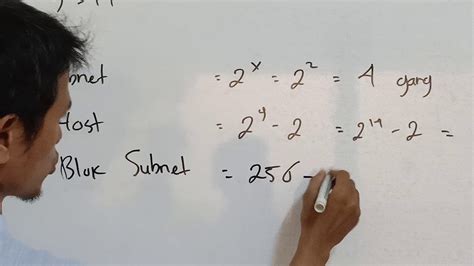 bnet = 2^x = 2^2 = 4 gang
Host = 2^y - 2 = 2^14 - 2 =
Blok Subnet = 256 -